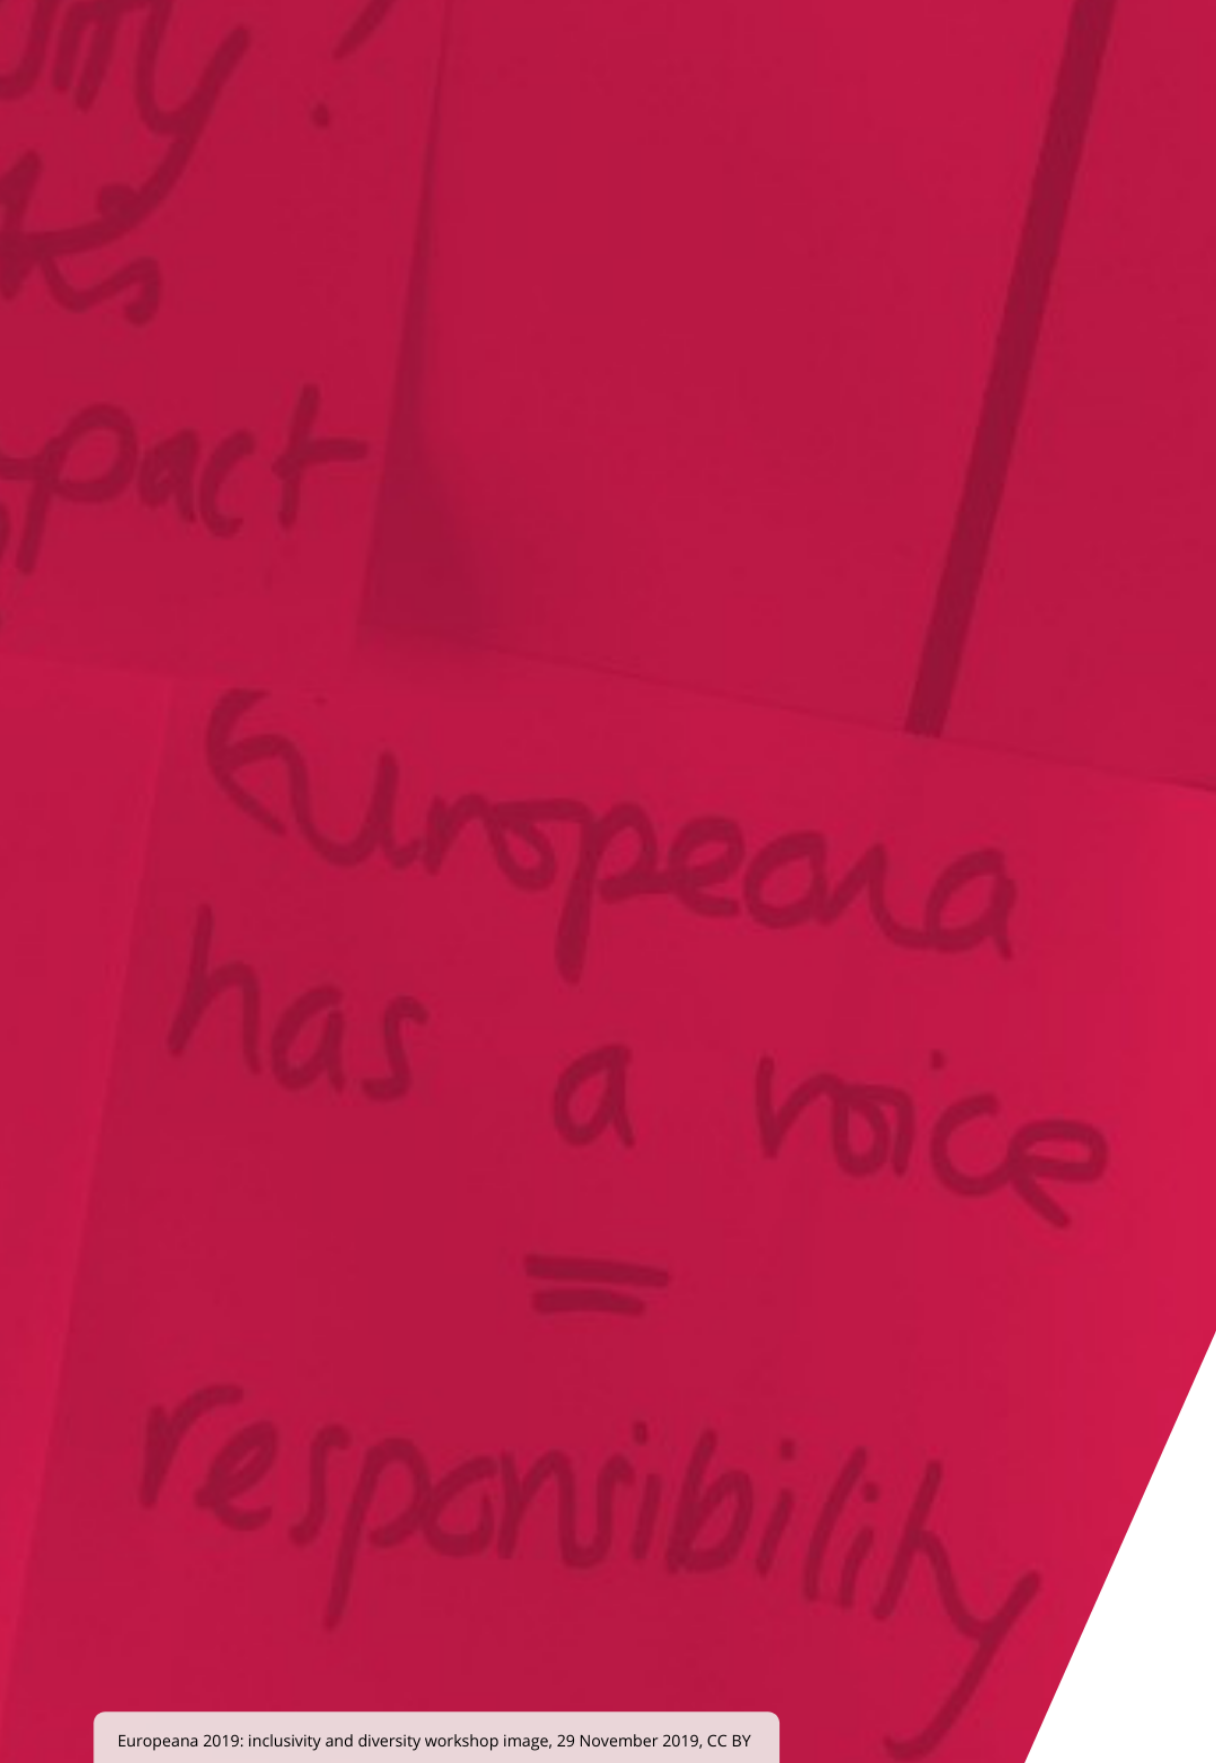 Europeana
has a voice
=
responsibility
Europeana 2019: inclusivity and diversity workshop image, 29 November 2019, CC BY